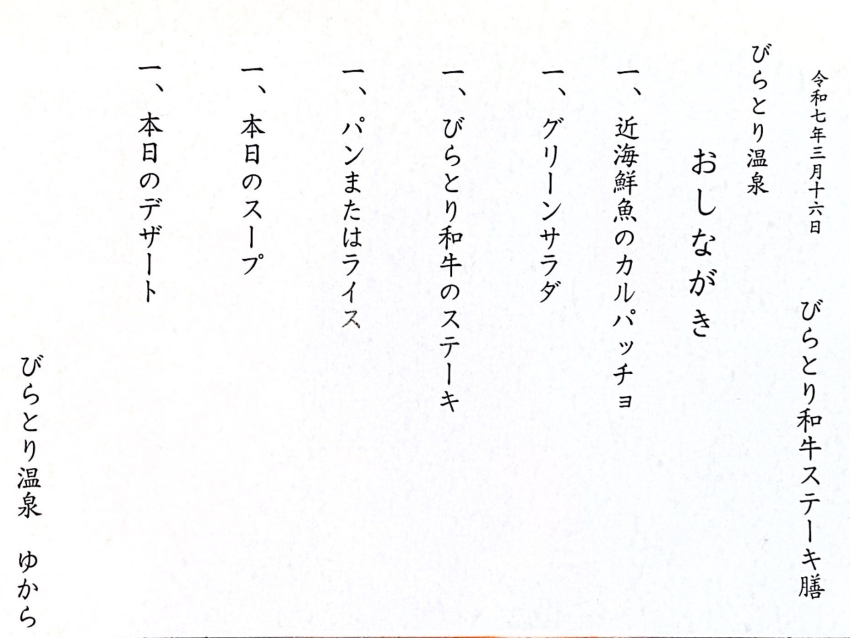 令和七年三月十六日　びらとり和牛ステーキ膳
びらとり温泉
おしながき
一、近海鮮魚のカルパッチョ
一、グリーンサラダ
一、びらとり和牛のステーキ
一、パンまたはライス
一、本日のスープ
一、本日のデザート
びらとり温泉　ゆから